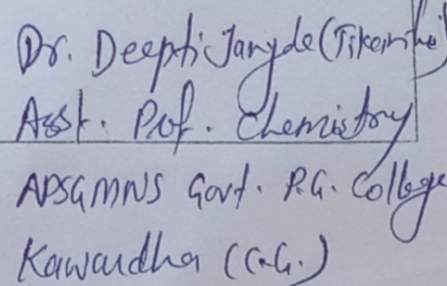 Dr. Deepti Jangde (Tikariha)
Asst. Prof. Chemistry
APSGMNS Govt. P.G. College
Kawardha (C.G.)